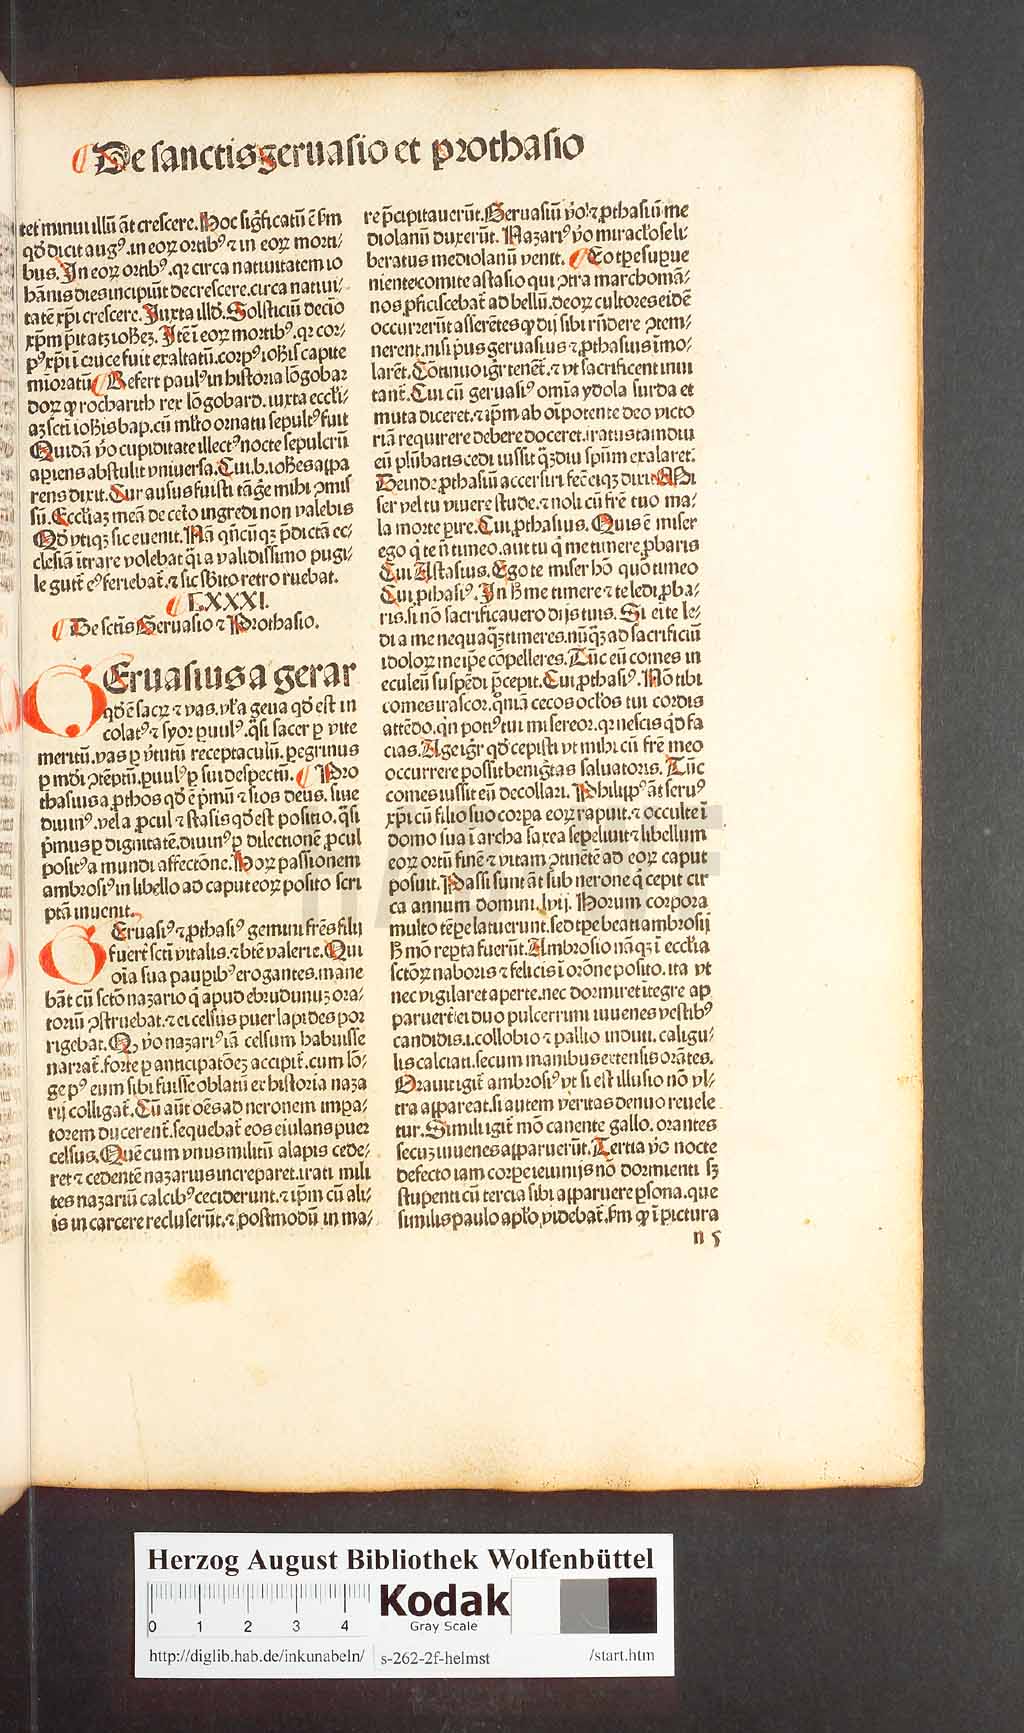 ¶ De sanctis geruasio et prothasio
tet minui illũ āt crescere. Hoc sig̃ficatũ ē ẜm
qd̓ dicit augꝰ. in eoꝝ ortibꝰ ⁊ in eoꝝ morti⸗
bus. In eoꝝ ortibꝰ. qꝛ circa natiuitatem io
hānis dies incipiũt decrescere. circa natiui⸗
tatē xp̄i crescere. Iuxta illđ. Solsticiũ decio
pꝰ xp̄i ĩ cruce fuit exaltatũ. corpꝰ iohĩs capite
mĩoratũ ¶ Refert paulꝰ in historia lōgobar
doꝝ ꝙ rocharith rex lōgobard. iuxta eccl̓i⸗
aꝫ scti iohĩs bap. cũ ml̓to ornatu sepultꝰ fuit
Quidā ꝟo cupiditate illectꝰ nocte sepulcrũ
apiens abstulit vniuersa. Cui. b. iohēs appa
rens dixit. Cur ausus fuisti tāg̃e mihi ꝯmis
sũ. Eccl̓iaꝫ meā de cet̓o ingredi non valebis
Qd̓ vtiqꝫ sic euenit. Nā qn̄cũqꝫ p̄dictā ec⸗
clesiā ĩtrare volebat q̃si a validissimo pugi⸗
le gutt̄ eꝰ feriebat̃. ⁊ sic sb̓ito retro ruebat.
¶ LXXXI.
¶ De sctĩs Geruasio ⁊ Prothasio.
GEruasius a gerar
qd̓ ē sacꝝ ⁊ vas. vl̓ a gena qd̓ est in
colatꝰ ⁊ syor ꝑuulꝰ. q̃si sacer ꝑ vite
meritũ. vas ꝑ ꝟtutũ receptaculũ. ꝑegrinus
ꝑ mũdi ꝯtēptũ. ꝑuulꝰ ꝑ sui despectũ. ¶ Pro
thasius a ꝓthos qd̓ ē p̃mũ ⁊ sios deus. siue
diuinꝰ. vel a procul ⁊ stasis qd̓ est positio. q̃si
p̃mus ꝑ dignitatē. diuinꝰ ꝑ dilectionē ꝓcul
positꝰ a mundi affectōne. Hoꝝ passionem
ambrosiꝰ in libello ad caput eoꝝ posito scri
ptā inuenit.
GEruasiꝰ ⁊ ꝓthasiꝰ gemini fr̄es filij
fuer̄t scti vitalis. ⁊ btē valerie. Qui
oĩa sua pauꝑibꝰ erogantes. mane
bāt cũ sctō nazario q̃ apud ebrudunuꝫ ora⸗
toriũ ꝯstruebat. ⁊ ei celsus puer lapides por
rigebat. Qꝫ ꝟo nazariꝰ iā celsum habuisse
narrat̃. forte ꝑ anticipatōeꝫ accipit̃. cum lō⸗
ge pꝰ eum sibi fuisse oblatũ ex historia naza
rij colligat̃. Cũ aũt oēs ad neronem impa⸗
torem ducerent̃. sequebat̃ eos eiulans puer
celsus. Quē cum vnus militũ alapis cede⸗
ret ⁊ cedentē nazarius increparet. irati mili
tes nazariũ calcibꝰ ceciderunt. ⁊ ip̄m cũ ali⸗
is in carcere recluserũt. ⁊ postmodũ in ma⸗
re p̃cipitauerũt. Geruasiũ ꝟo ⁊ ꝓthasiũ me
diolanũ duxerũt. Nazariꝰ ꝟo miraclo̓se li⸗
beratus mediolanũ venit. ¶ Eo tꝑe suꝑue
niente comite astasio qui ꝯtra marchomā⸗
nos ꝓficiscebat̃ ad bellũ. deoꝝ cultores eidē
occurrerũt asserētes ꝙ dij sibi rñdere ꝯtem⸗
nerent. nisi p̃us geruasius ⁊ ꝓthasius ĩmo⸗
larēt. Cōtinuo igr̃ tenēt̃. ⁊ vt sacrificent inui
tant̃. Cui cũ geruasiꝰ omĩa ydola surda et
muta diceret. ⁊ ip̄m ab oĩpotente deo victo
riā requirere debere doceret. iratus tamdiu
eũ plũbatis cedi iussit q̃ꝫdiu sp̃um exalaret.
Deinde ꝓthasiũ accersiri fec̄ eiqꝫ dixit. Mi
ser vel tu viuere stude. ⁊ noli cũ fr̄e tuo ma⸗
la morte ꝑire. Cui ꝓthasius. Quis ē miser
ego q̃ te ñ timeo. aut tu q̃ me timere ꝓbaris
Cui Astasius. Ego te miser hō quō timeo
Cui ꝓthasiꝰ. In hͨ me timere ⁊ te ledi ꝓba⸗
ris. si nō sacrificauero dijs tuis. Si ei̓ te le⸗
di a me nequaq̃ꝫ timeres. nũq̃ꝫ ad sacrificiũ
idoloꝝ me ip̄e cōpelleres. Tũc eũ comes in
eculeũ suspēdi p̃cepit. Cui ꝓthasiꝰ. Nō tibi
comes irascor. qm̃iā cecos oclo̓s tui cordis
attēdo. qñ potiꝰ tui misereor. qꝛ nescis qd̓ fa
cias. Age igr̃ qd̓ cepisti vt mihi cũ fr̄e meo
occurrere possit benigĩtas saluatoris. Tũc
comes iussit eũ decollari. Philippꝰ āt seruꝰ
xp̄i cũ filio suo corpa eoꝝ rapuit. ⁊ occulte ĩ
domo sua ĩ archa saxea sepeliuit ⁊ libellum
eoꝝ ortũ finē ⁊ vitam ꝯtinētē ad eoꝝ caput
posuit. Passi sunt āt sub nerone q̃ cepit cir
ca annum domini. lvij. Horum corpora
multo tēꝑe latuerunt. sed tꝑe beati ambrosij
hͨ mōn reꝑta fuerũt. Ambrosio nāqꝫ ĩ eccl̓ia
sctōꝝ naboris ⁊ felicis ĩ orōne posito. ita vt
nec vigilaret aperte. nec dormiret ĩtegre ap
paruer̄t ei duo pulcerrimi iuuenes vestibꝰ
candidis. i. collobio ⁊ pallio induti. caligu⸗
lis calciati. secum manibus extensis orātes.
Orauit igit̃ ambrosiꝰ vt si est illusio nō vl⸗
tra appareat. si autem veritas denuo reuele
tur. Simili igit̃ mō canente gallo. orantes
secuꝫ iuuenes apparuerũt. Tertia ꝟo nocte
defecto iam corꝑe ieiunijs nō dormienti sꝫ
stupenti cũ tercia sibi apparuere ꝑsona. que
similis paulo aplo̓ videbat̃. ẜm ꝙ ĩ pictura
n 5
HAB WF
Herzog August Bibliothek Wolfenbüttel
0 1 2 3 4
Kodak
Gray Scale
http://diglib.hab.de/inkunabeln/ s-262-2f-helmst /start.htm